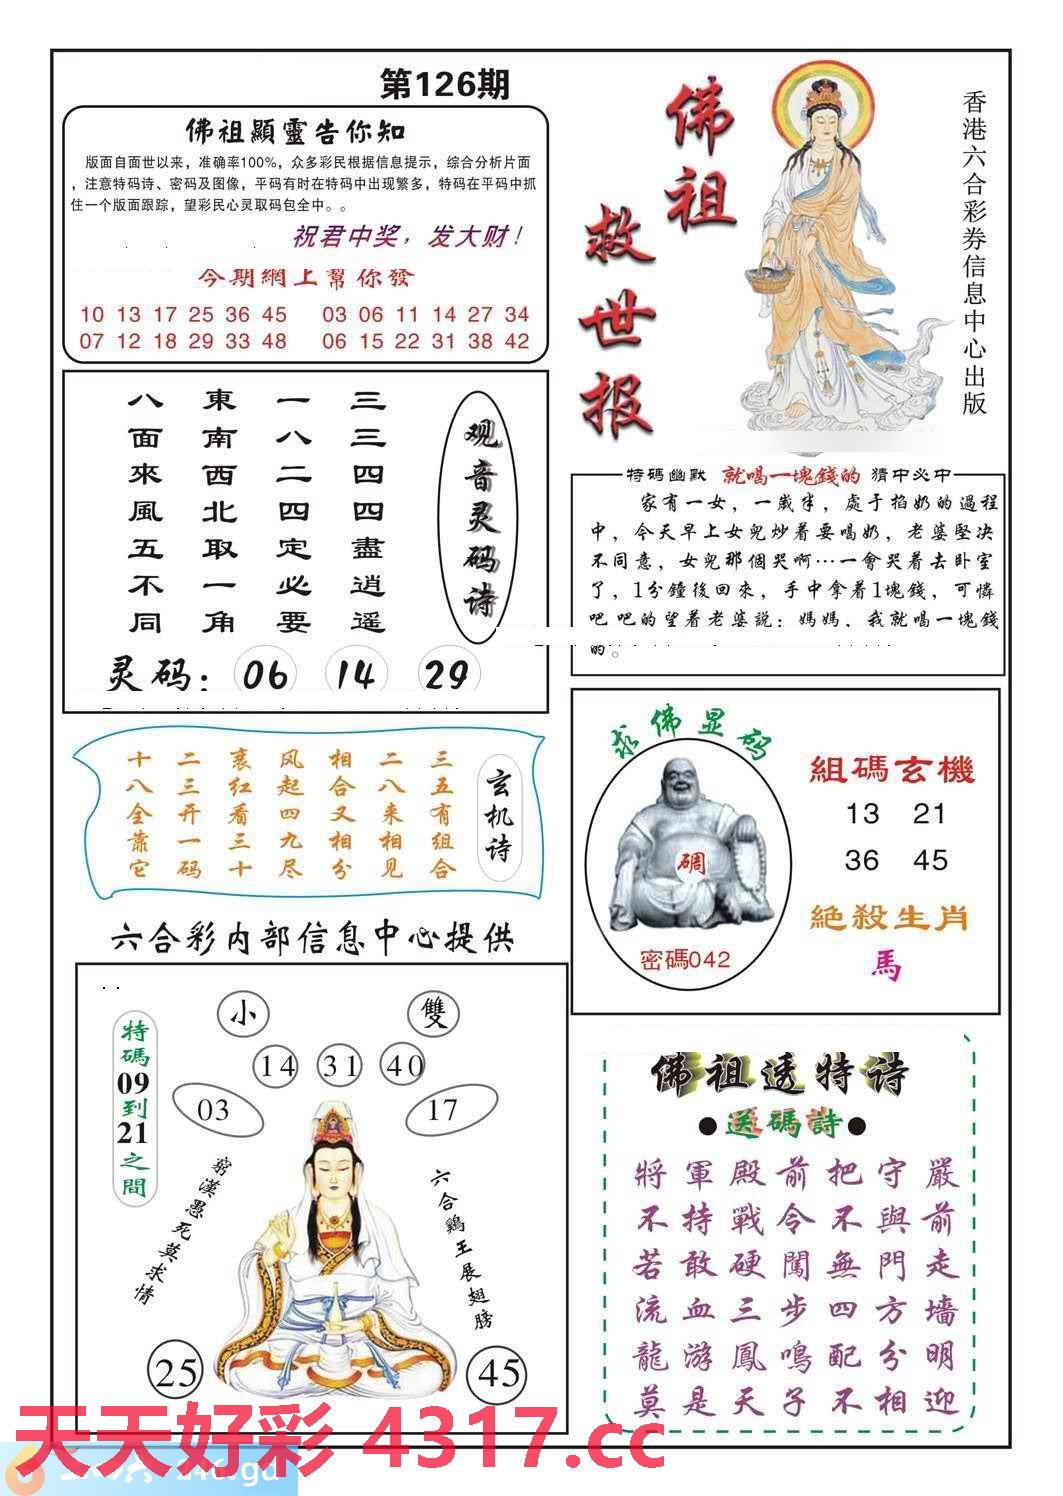 第126期
佛祖顯靈告你知
版面自面世以来，准确率100%，众多彩民根据信息提示，综合分析片面
，注意特码诗、密码及图像，平码有时在特码中出现繁多，特码在平码中抓
住一个版面跟踪，望彩民心灵取码包全中。。
祝君中奖，发大财！
今期網上幫你發
10 13 17 25 36 45 03 06 11 14 27 34
07 12 18 29 33 48 06 15 22 31 38 42
佛祖
救世报
香港六合彩券信息中心出版
观音灵码诗
三三四四盡逍遥
一八二四定必要
東南西北取一角
八面來風五不同
灵码：06 14 29
特碼幽默 就喝一塊錢的 猜中必中
家有一女，一歲半，處于掐奶的過程
中，今天早上女兒炒着要喝奶，老婆堅决
不同意，女兒那個哭啊…一會哭着去卧室
了，1分鐘後回來，手中拿着1塊錢，可憐
吧吧的望着老婆説：媽媽，我就喝一塊錢
的。
玄机诗
三五有组合
二八来相见
相合又相分
风起四九尽
裹红看三十
二三开一码
十八全靠它
求佛显码
碉
密碼042
組碼玄機
13 21
36 45
絕殺生肖
馬
六合彩内部信息中心提供
特碼09到21之間
小
雙
14 31 40
03
17
窮漢愚死莫求情
六合鷄王展翅膀
25
45
佛祖透特诗
●送碼詩●
將軍殿前把守嚴
不持戰令不與前
若敢硬闖無門走
流血三步四方墻
龍游鳳鳴配分明
莫是天子不相迎
天天好彩 4317.cc
246.gd